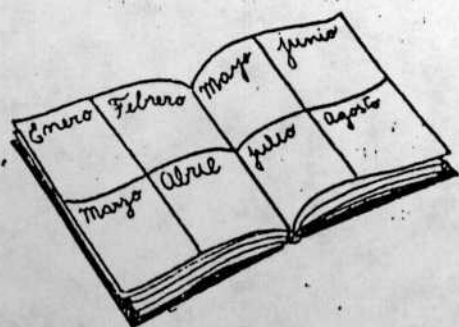 Enero Febrero
Marzo Abril
Mayo Junio
Julio Agosto